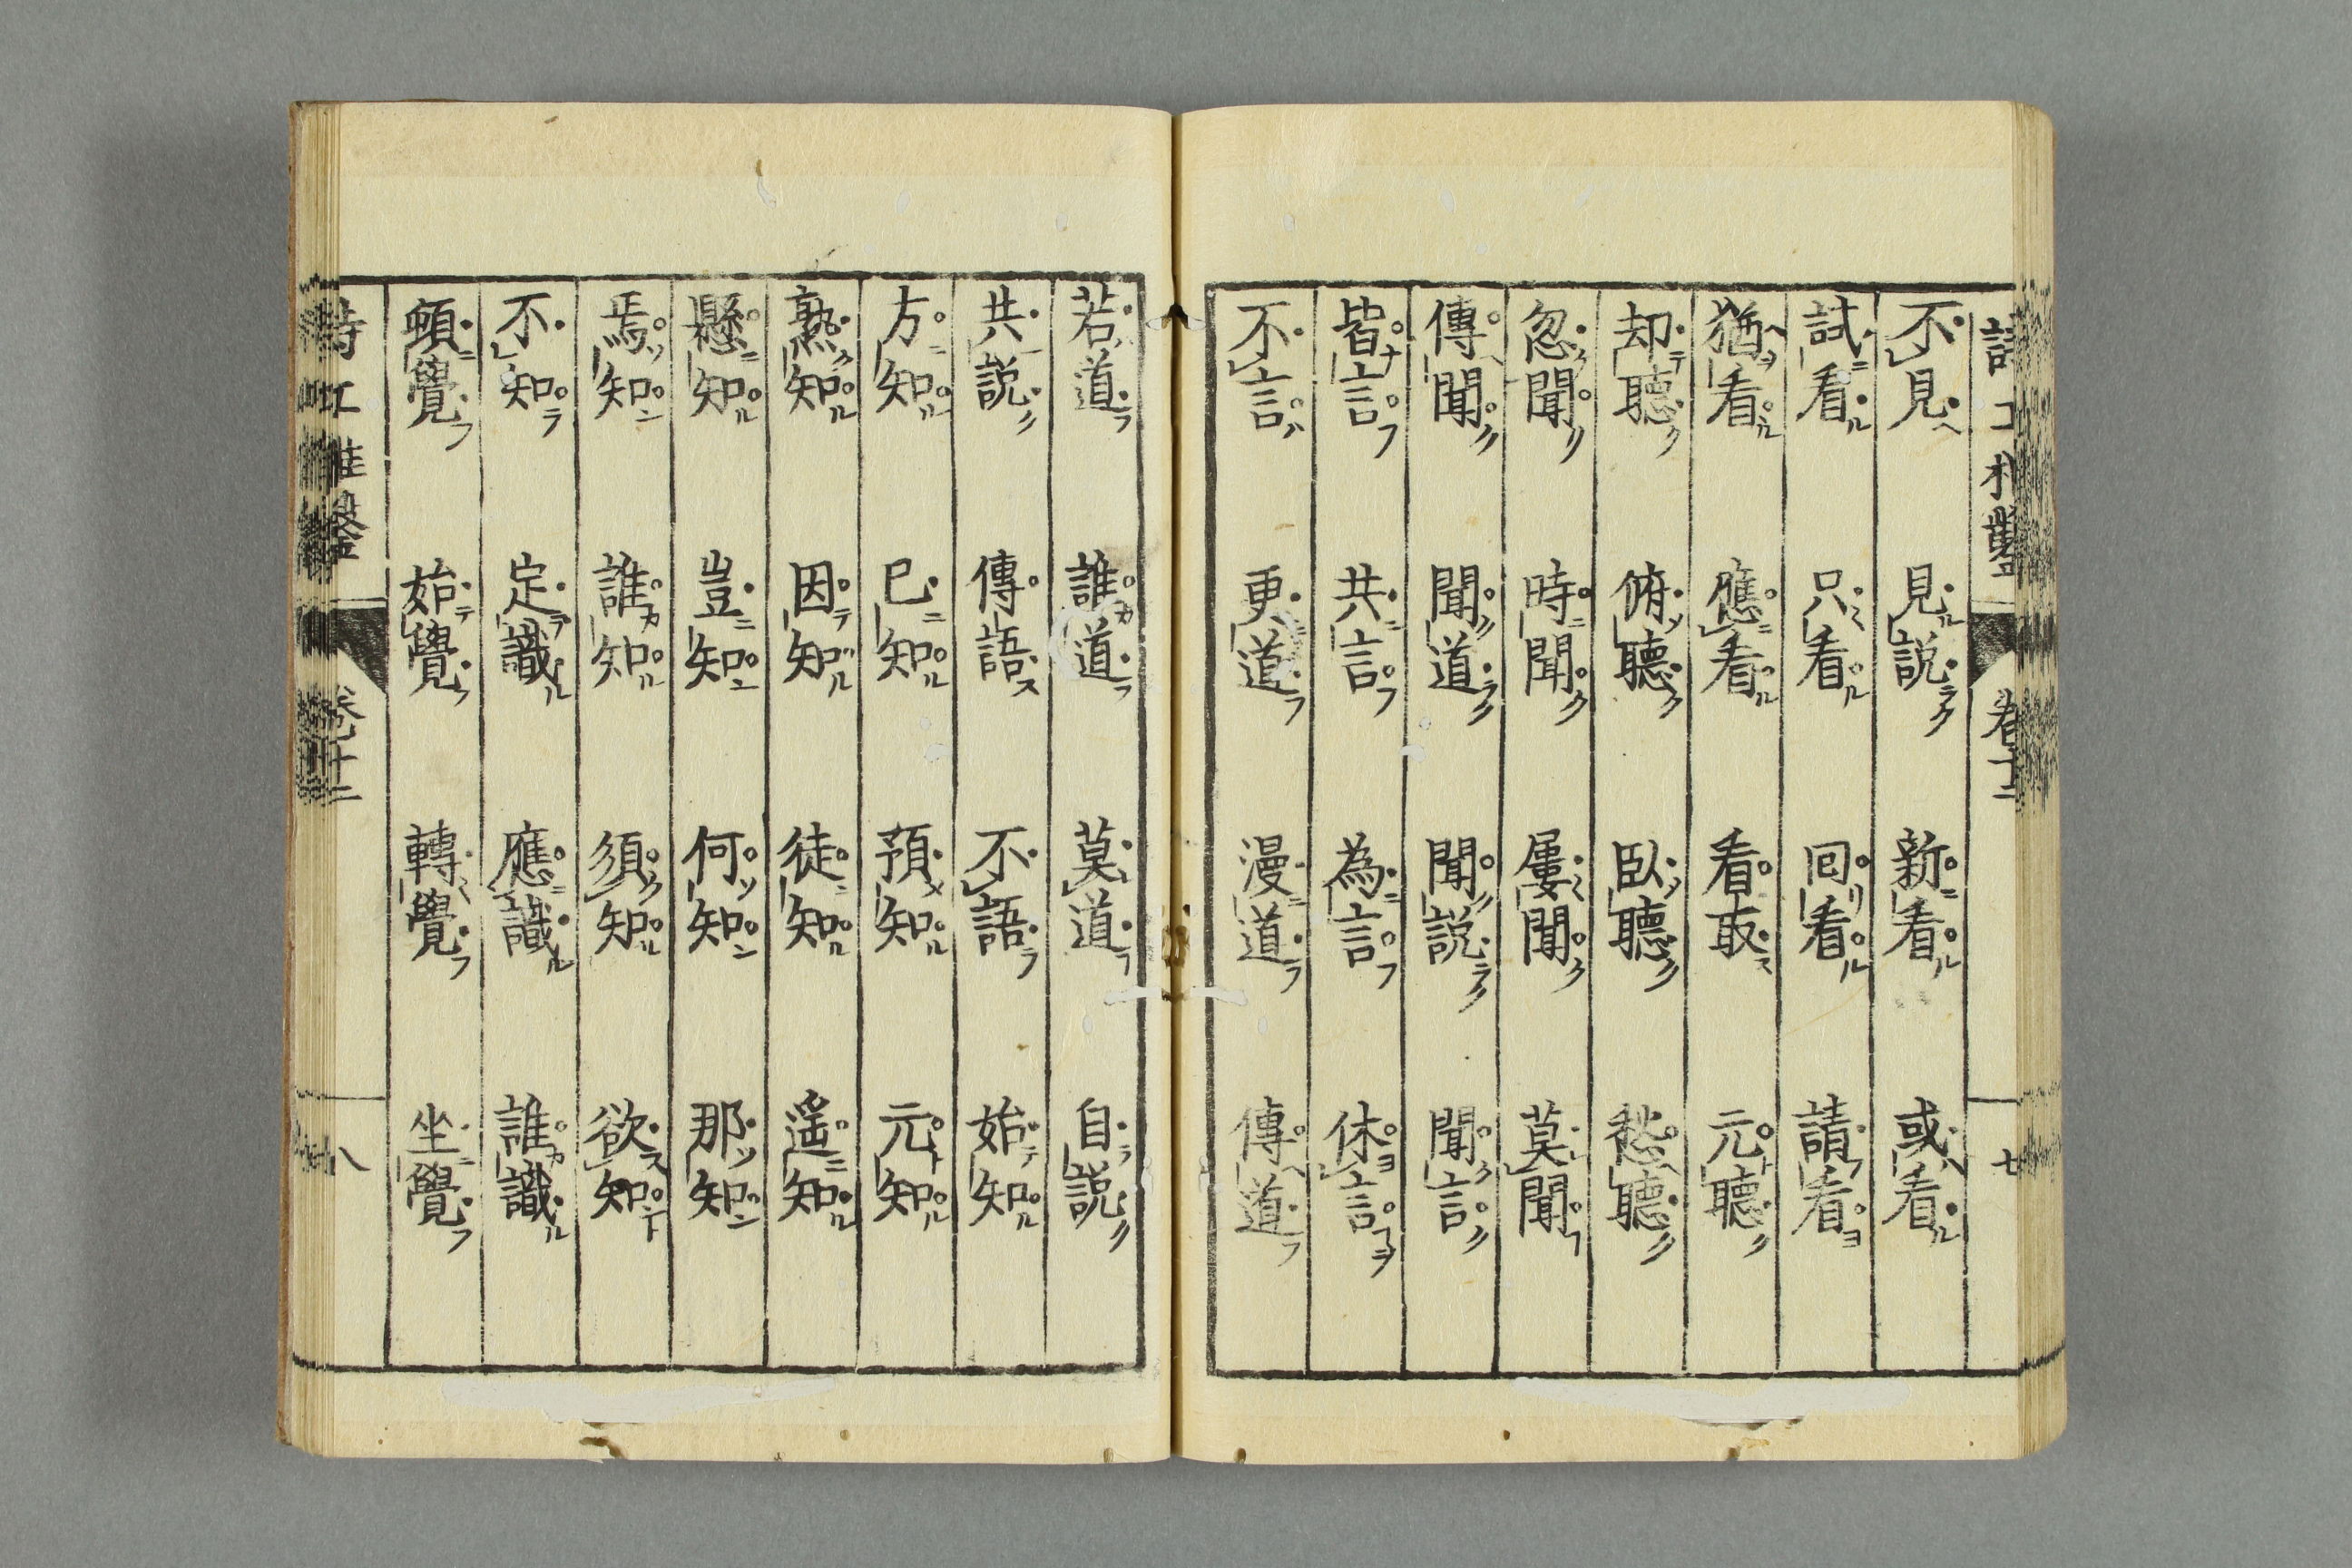 不見 見説 新看 或看
試看 只看 回看 請看
猶看 應看 看取 元聽
却聽 俯聽 臥聽 愁聽
忽聞 時聞 屢聞 莫聞
傳聞 聞道 聞説 聞言
皆言 共言 為言 休言
不言 更道 漫道 傳道
七
若道 誰道 莫道 自説
共説 傳語 不語 始知
方知 已知 預知 元知
熟知 因知 徒知 遥知
懸知 豈知 何知 那知
焉知 誰知 須知 欲知
不知 定識 應識 誰識
頓覺 始覺 轉覺 坐覺
卷十二
八